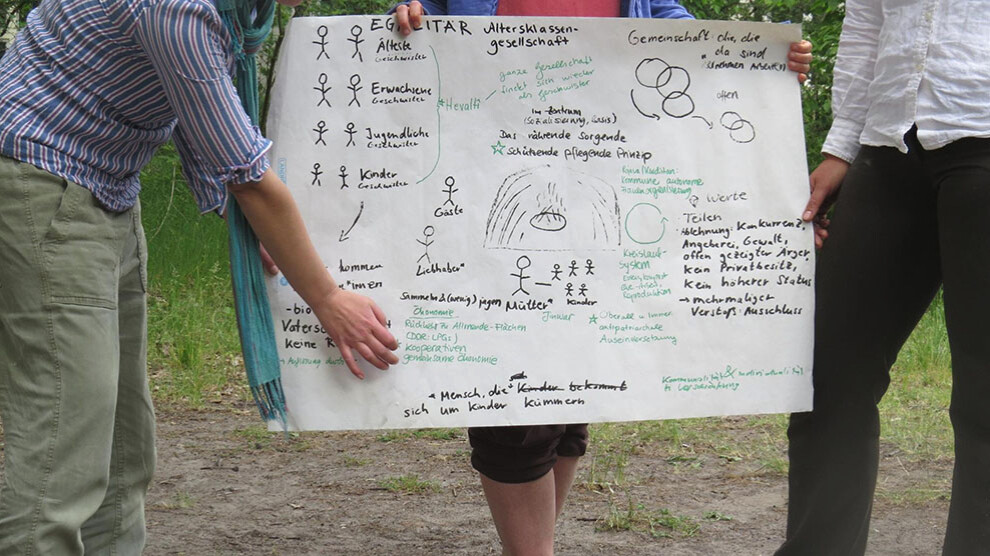 EGALITÄR Altersklassen-
gesellschaft
Älteste
Geschwister
Erwachsene
Geschwister
Jugendliche
Geschwister
Kinder
Geschwister
Hevalti
ganze Gesellschaft
findet sich wieder
als Geschwister
im Zentrum
(Sozialisierung, Basis)
Das nährende sorgende
Schützende pflegende Prinzip
Gemeinschaft die, die
da sind
offen
Kommune autonome
Werte
Teilen
Ablehnung: Konkurrenz,
Angeberei, Gewalt,
offen gezeigter Ärger,
kein Privatbesitz,
kein höherer Status
→ mehrmaliger
Verstoß: Ausschluss
Kreislauf-
system
Reproduktion
Gäste
Liebhaber*
Mütter* – Kinder
kommen
*innen
- bio
Vatersc
keine R
Sammeln & (wenig) jagen
Ökonomie
Rückbesitz zu Allmende-Flächen
(DDR: LPGs)
Kooperativen
gemeinsame Ökonomie
Überall u immer
antipatriarchale
Auseinandersetzung
Kommunalität & Individualität
"Mensch, die* Kinder bekommt
sich um Kinder kümmern